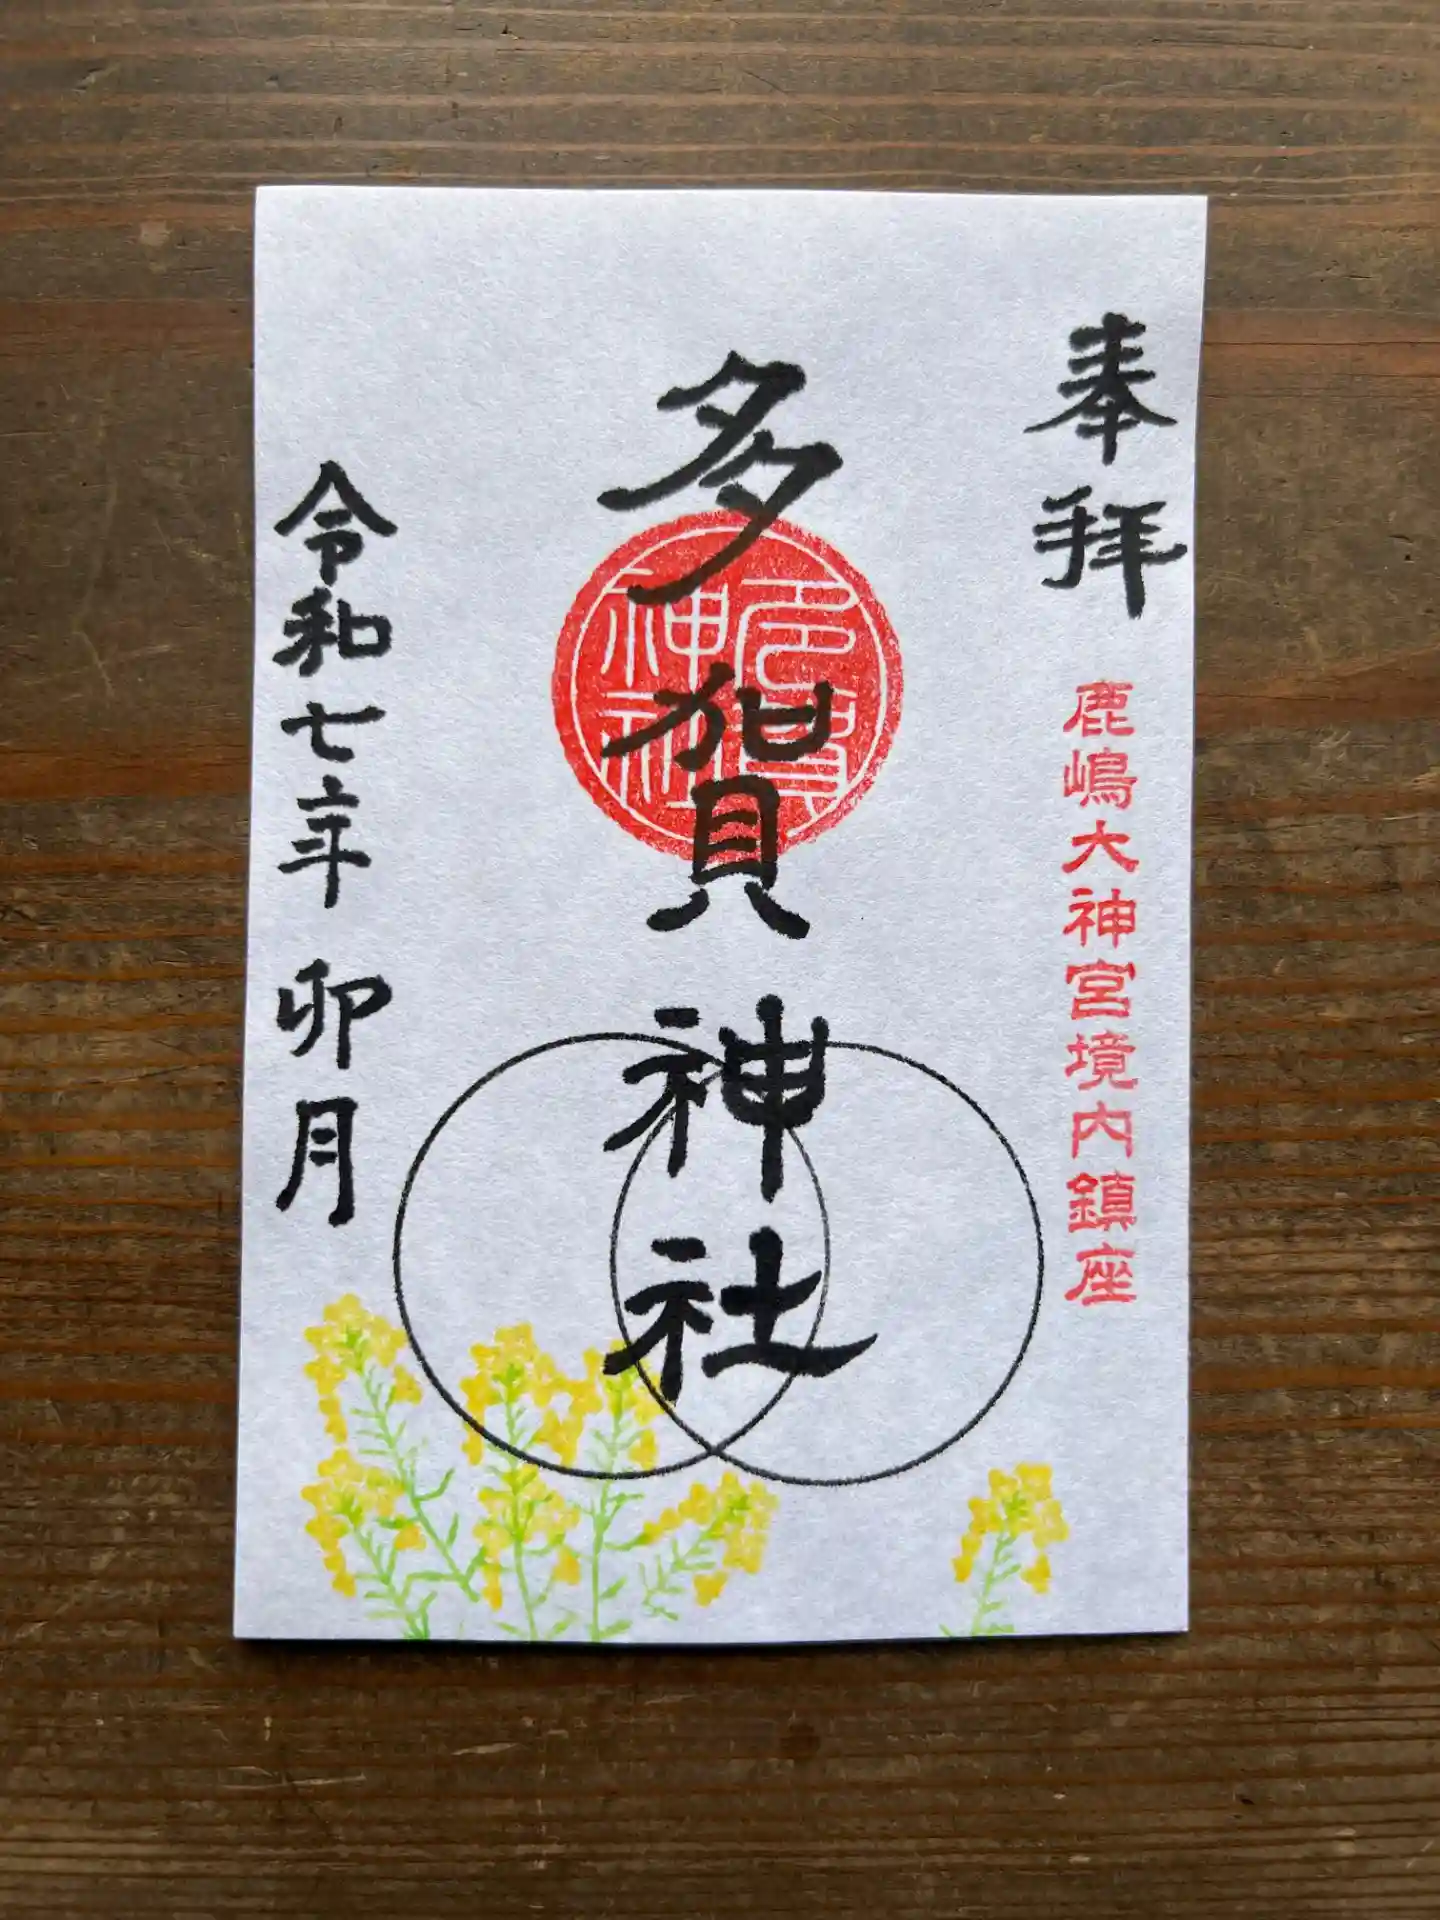 奉拝
鹿嶋大神宮境内鎮座
多賀神社
多賀神社
令和七年 卯月